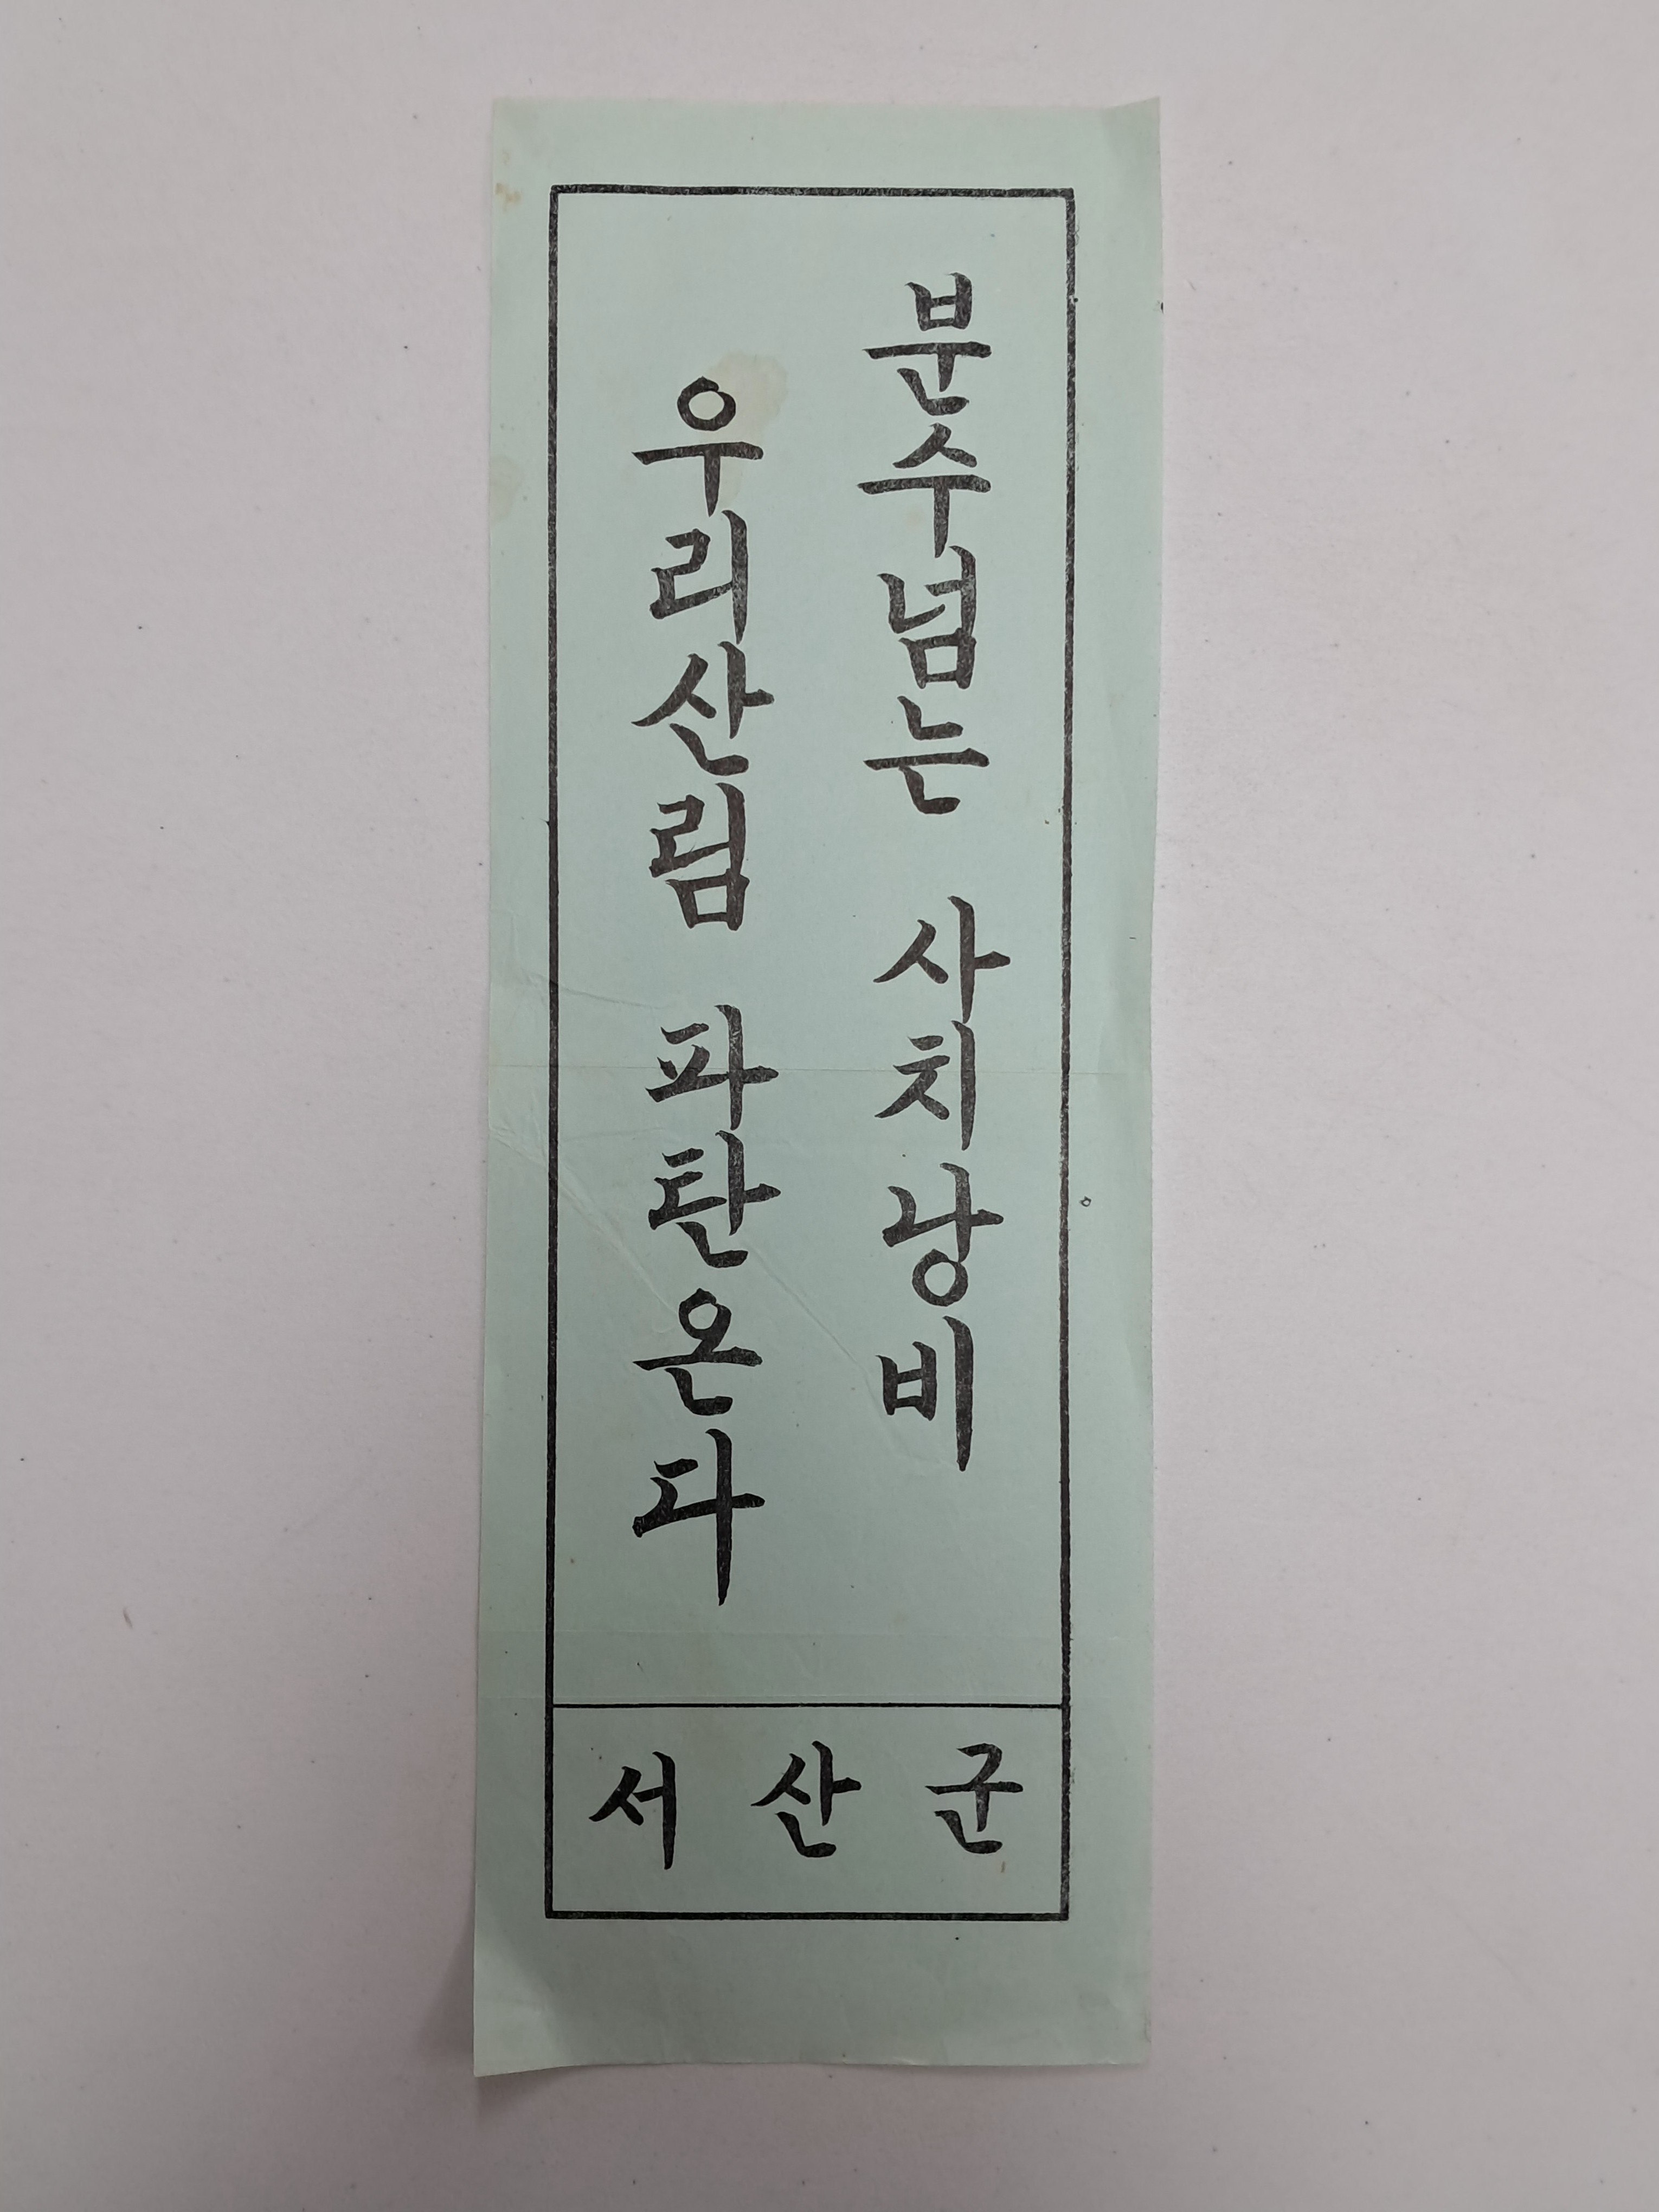 분수넘는 사치낭비
우리산림 파탄온다
서산군